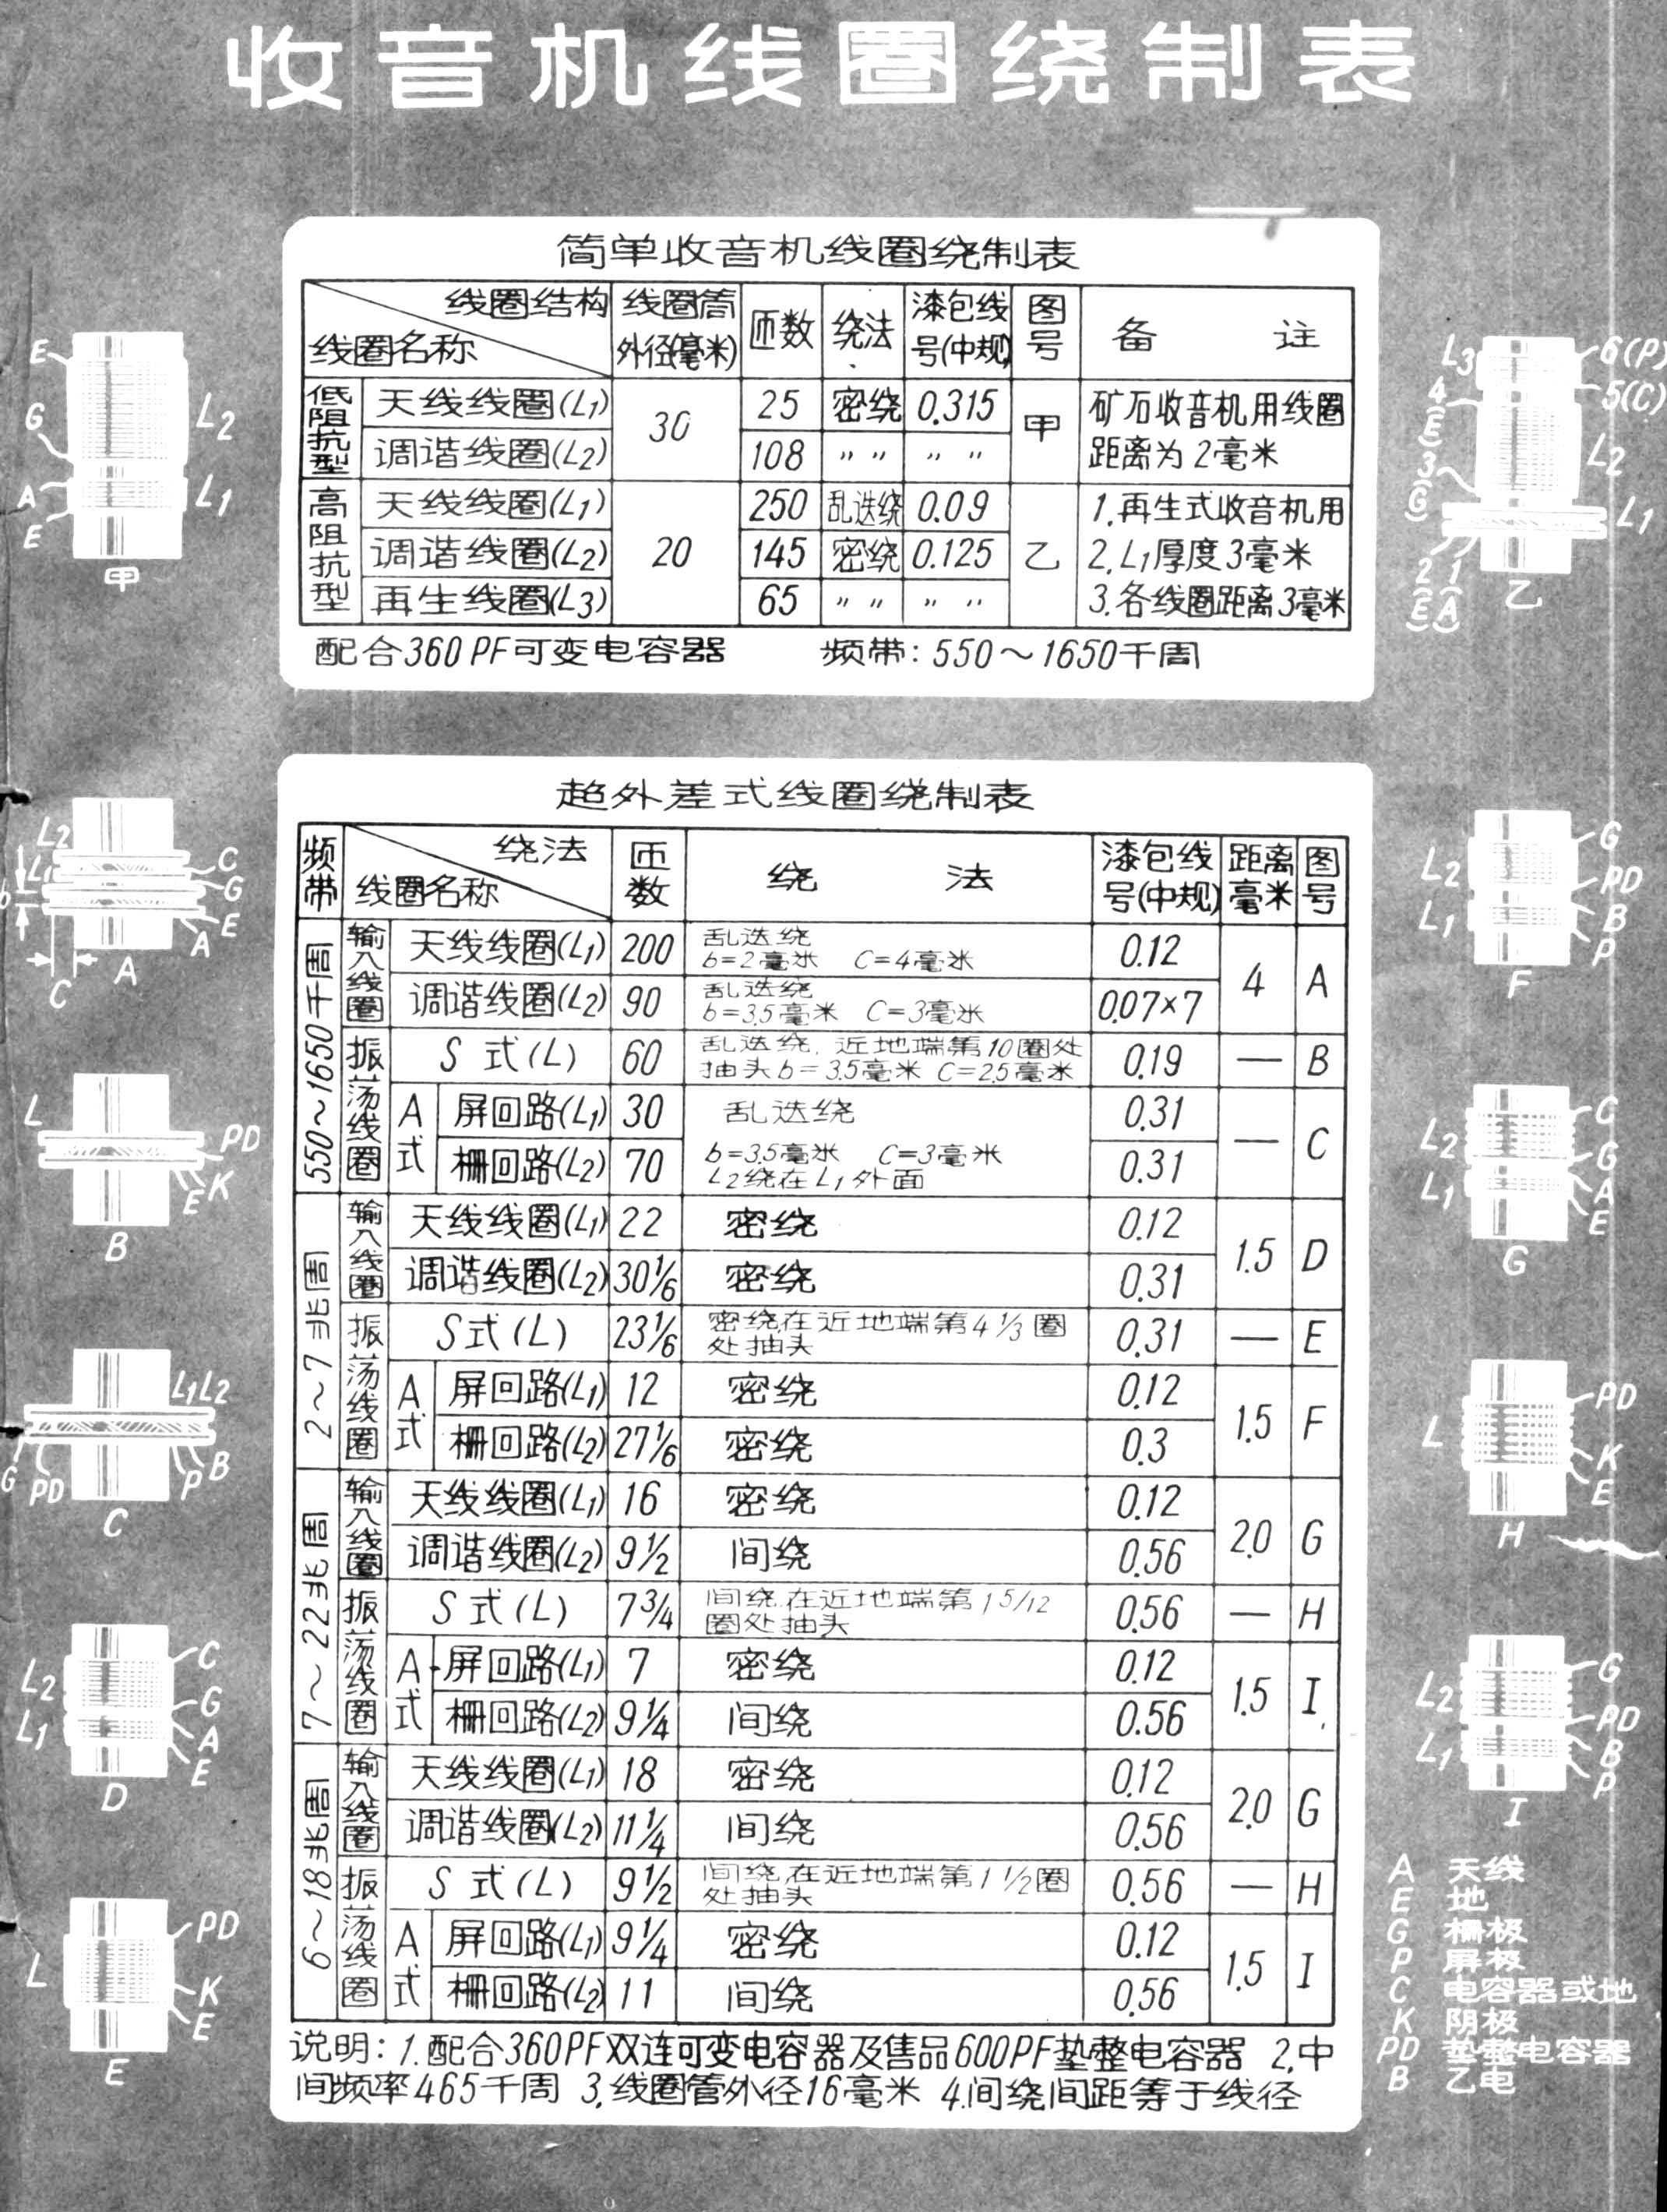 收音机线圈绕制表
简单收音机线圈绕制表
线圈结构 线圈名称 线圈筒外径(毫米) 匝数 绕法 漆包线号(中规) 图号 备注
低阻抗型 天线线圈(L1) 30 25 密绕 0.315 甲 矿石收音机用线圈
调谐线圈(L2) 108 〃 〃 〃 〃 距离为2毫米
高阻抗型 天线线圈(L1) 20 250 乱迭绕 0.09 乙 1.再生式收音机用
调谐线圈(L2) 145 密绕 0.125 2.L1厚度3毫米
再生线圈(L3) 65 〃 〃 〃 〃 3.各线圈距离3毫米
配合360PF可变电容器 频带:550～1650千周
超外差式线圈绕制表
频带 绕法 线圈名称 匝数 绕法 漆包线号(中规) 距离毫米 图号
550～1650千周 输入线圈 天线线圈(L1) 200 乱迭绕 b=2毫米 C=4毫米 0.12 4 A
调谐线圈(L2) 90 乱迭绕 b=3.5毫米 C=3毫米 0.07×7
振荡线圈 S式(L) 60 乱迭绕,近地端第10圈处抽头b=3.5毫米 C=2.5毫米 0.19 — B
A式 屏回路(L1) 30 乱迭绕 0.31 — C
栅回路(L2) 70 b=3.5毫米 C=3毫米 L2绕在L1外面 0.31
2～7兆周 输入线圈 天线线圈(L1) 22 密绕 0.12 1.5 D
调谐线圈(L2) 30 1/6 密绕 0.31
振荡线圈 S式(L) 23 1/6 密绕,在近地端第4 1/3圈处抽头 0.31 — E
A式 屏回路(L1) 12 密绕 0.12 1.5 F
栅回路(L2) 27 1/6 密绕 0.3
7～22兆周 输入线圈 天线线圈(L1) 16 密绕 0.12 2.0 G
调谐线圈(L2) 9 1/2 间绕 0.56
振荡线圈 S式(L) 7 3/4 间绕,在近地端第1 5/12圈处抽头 0.56 — H
A式 屏回路(L1) 7 密绕 0.12 1.5 I
栅回路(L2) 9 1/4 间绕 0.56
6～18兆周 输入线圈 天线线圈(L1) 18 密绕 0.12 2.0 G
调谐线圈(L2) 11 1/4 间绕 0.56
振荡线圈 S式(L) 9 1/2 间绕,在近地端第1 1/2圈处抽头 0.56 — H
A式 屏回路(L1) 9 1/4 密绕 0.12 1.5 I
栅回路(L2) 11 间绕 0.56
说明:1.配合360PF双连可变电容器及售品600PF垫整电容器 2.中
间频率465千周 3.线圈管外径16毫米 4.间绕间距等于线径
E G A E L2 L1
甲
L2 L1 b C G E A C
A
L PD K E
B
L1 L2 G PD P B
C
L2 L1 C G A E
D
L PD K E
E
L3 6(P) 5(C) 4(E) L2 3(G) L1 2(E) 1(A)
乙
L2 L1 G PD B P
F
L2 L1 C G A E
G
L PD K E
H
L2 L1 G PD B P
I
A 天线
E 地
G 栅极
P 屏极
C 电容器或地
K 阴极
PD 垫整电容器
B 乙电